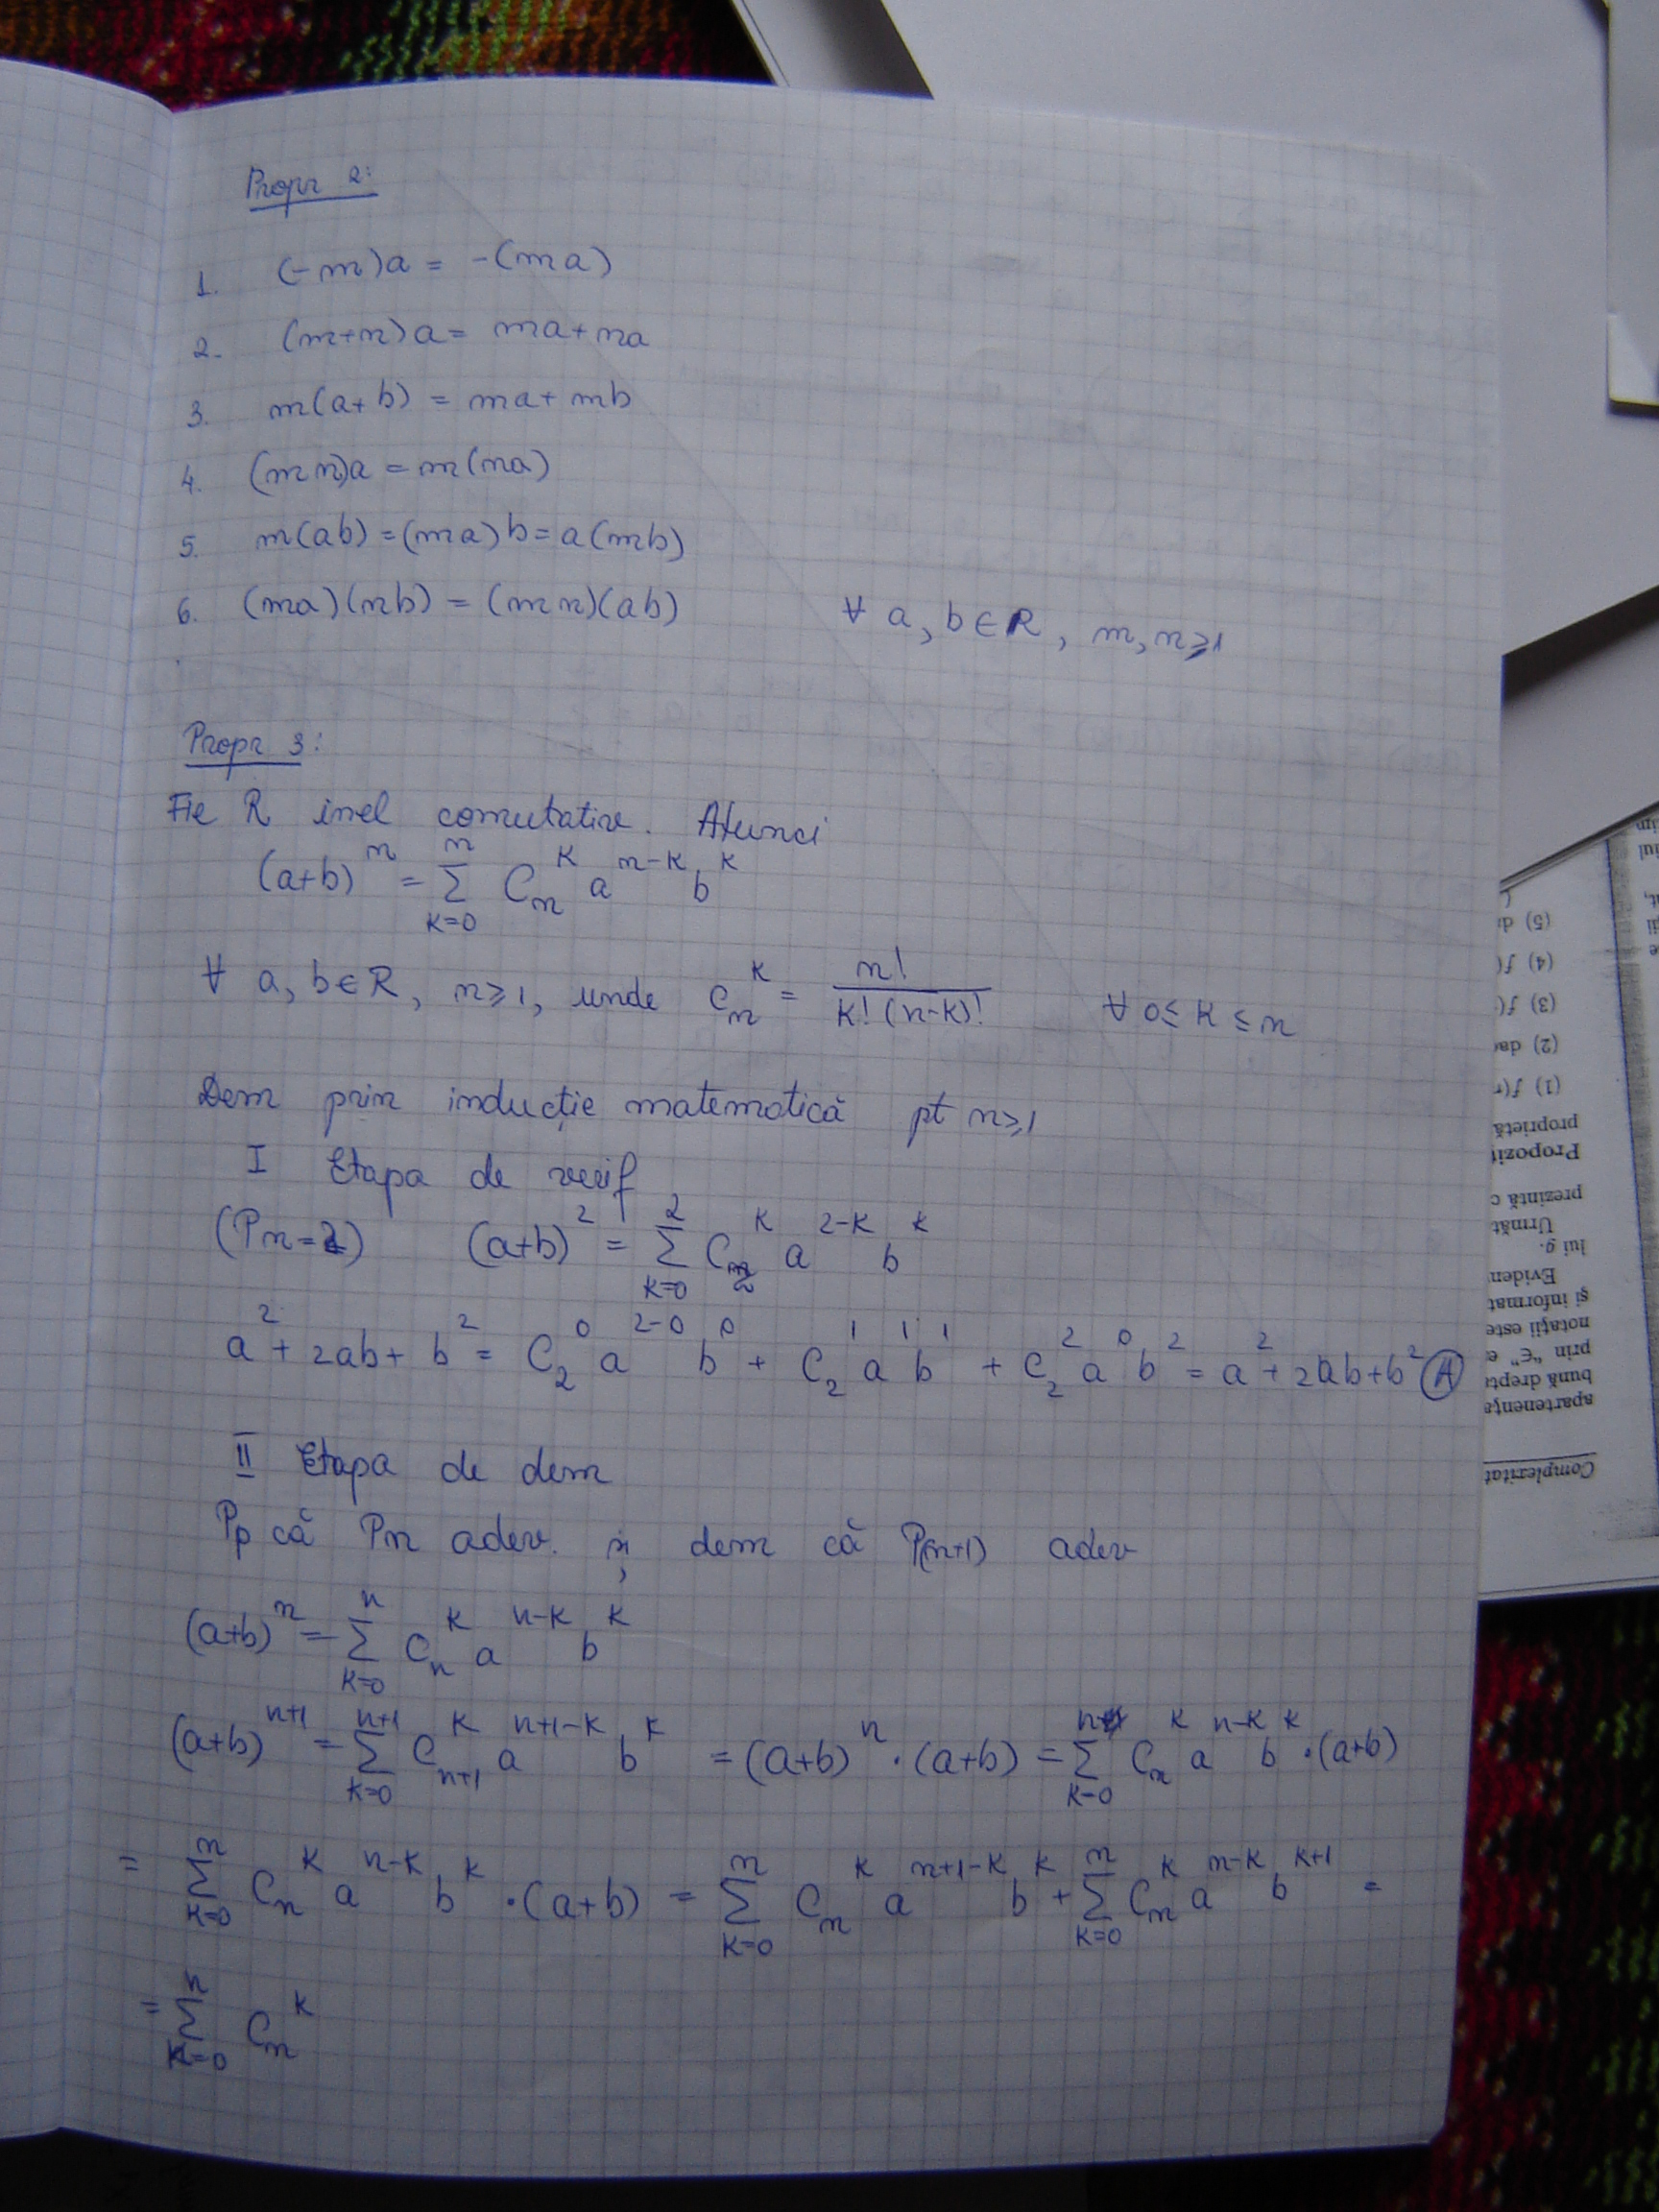 Propr 2:
1. (-m)a = -(ma)
2. (m+n)a = ma+na
3. m(a+b) = ma+mb
4. (mn)a = m(na)
5. m(ab) = (ma)b = a(mb)
6. (ma)(nb) = (mn)(ab) ∀ a, b ∈ R, m, n ≥ 1
Propr 3:
Fie R inel comutativ. Atunci
(a+b)^n = Σ_{k=0}^{n} C_n^k a^{n-k} b^k
∀ a, b ∈ R, n ≥ 1, unde C_n^k = n! / k!(n-k)! ∀ 0 ≤ k ≤ n
Dem prin inducție matematică pt n ≥ 1
I Etapa de verif
(Pn=2) (a+b)^2 = Σ_{k=0}^{2} C_2^k a^{2-k} b^k
a^2 + 2ab + b^2 = C_2^0 a^{2-0} b^0 + C_2^1 a^1 b^1 + C_2^2 a^0 b^2 = a^2 + 2ab + b^2 (A)
II Etapa de dem
Pp că Pn adev. și dem că P(n+1) adev
(a+b)^n = Σ_{k=0}^{n} C_n^k a^{n-k} b^k
(a+b)^{n+1} = Σ_{k=0}^{n+1} C_{n+1}^k a^{n+1-k} b^k = (a+b)^n · (a+b) = Σ_{k=0}^{n} C_n^k a^{n-k} b^k · (a+b)
= Σ_{k=0}^{n} C_n^k a^{n-k} b^k · (a+b) = Σ_{k=0}^{n} C_n^k a^{n+1-k} b^k + Σ_{k=0}^{n} C_n^k a^{n-k} b^{k+1} =
= Σ_{k=0}^{n} C_n^k
Complexitat
apartenența
bună drept
prin “∈” e
notații este
și informat
Eviden
lui g.
Următ
prezintă c
Propoziț
proprietă
(1) f(
(2) dac
(3) f(
(4) f(
(5) d